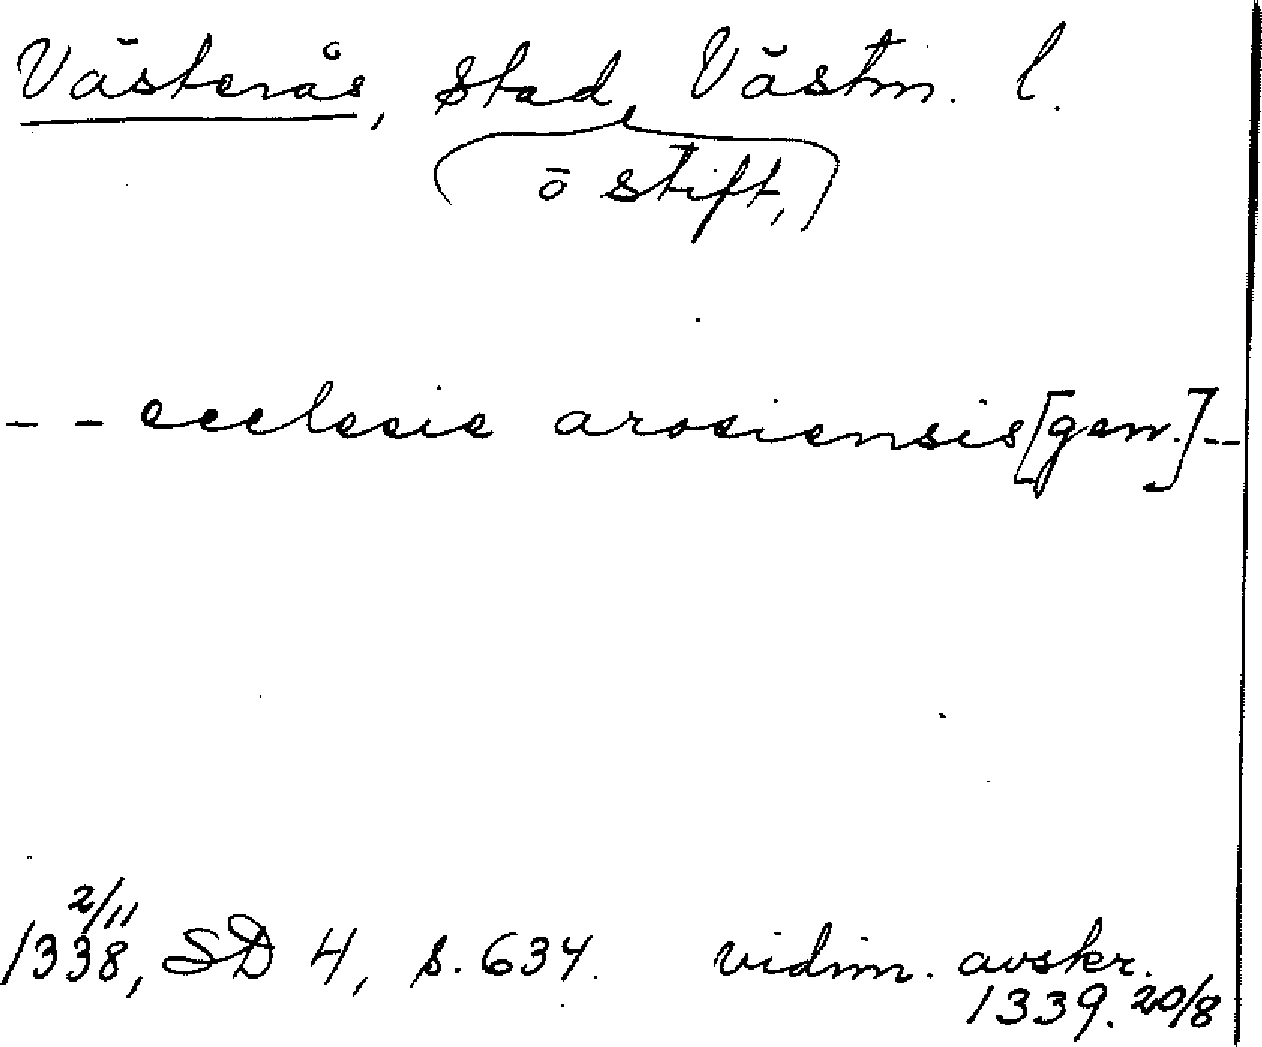 Västerås, stad, Västm. l.
o stift,
-- ecclesie arosiensis [gen.] --
2/11
1338, SD 4, s. 634. vidim. avskr.
1339. 20/8